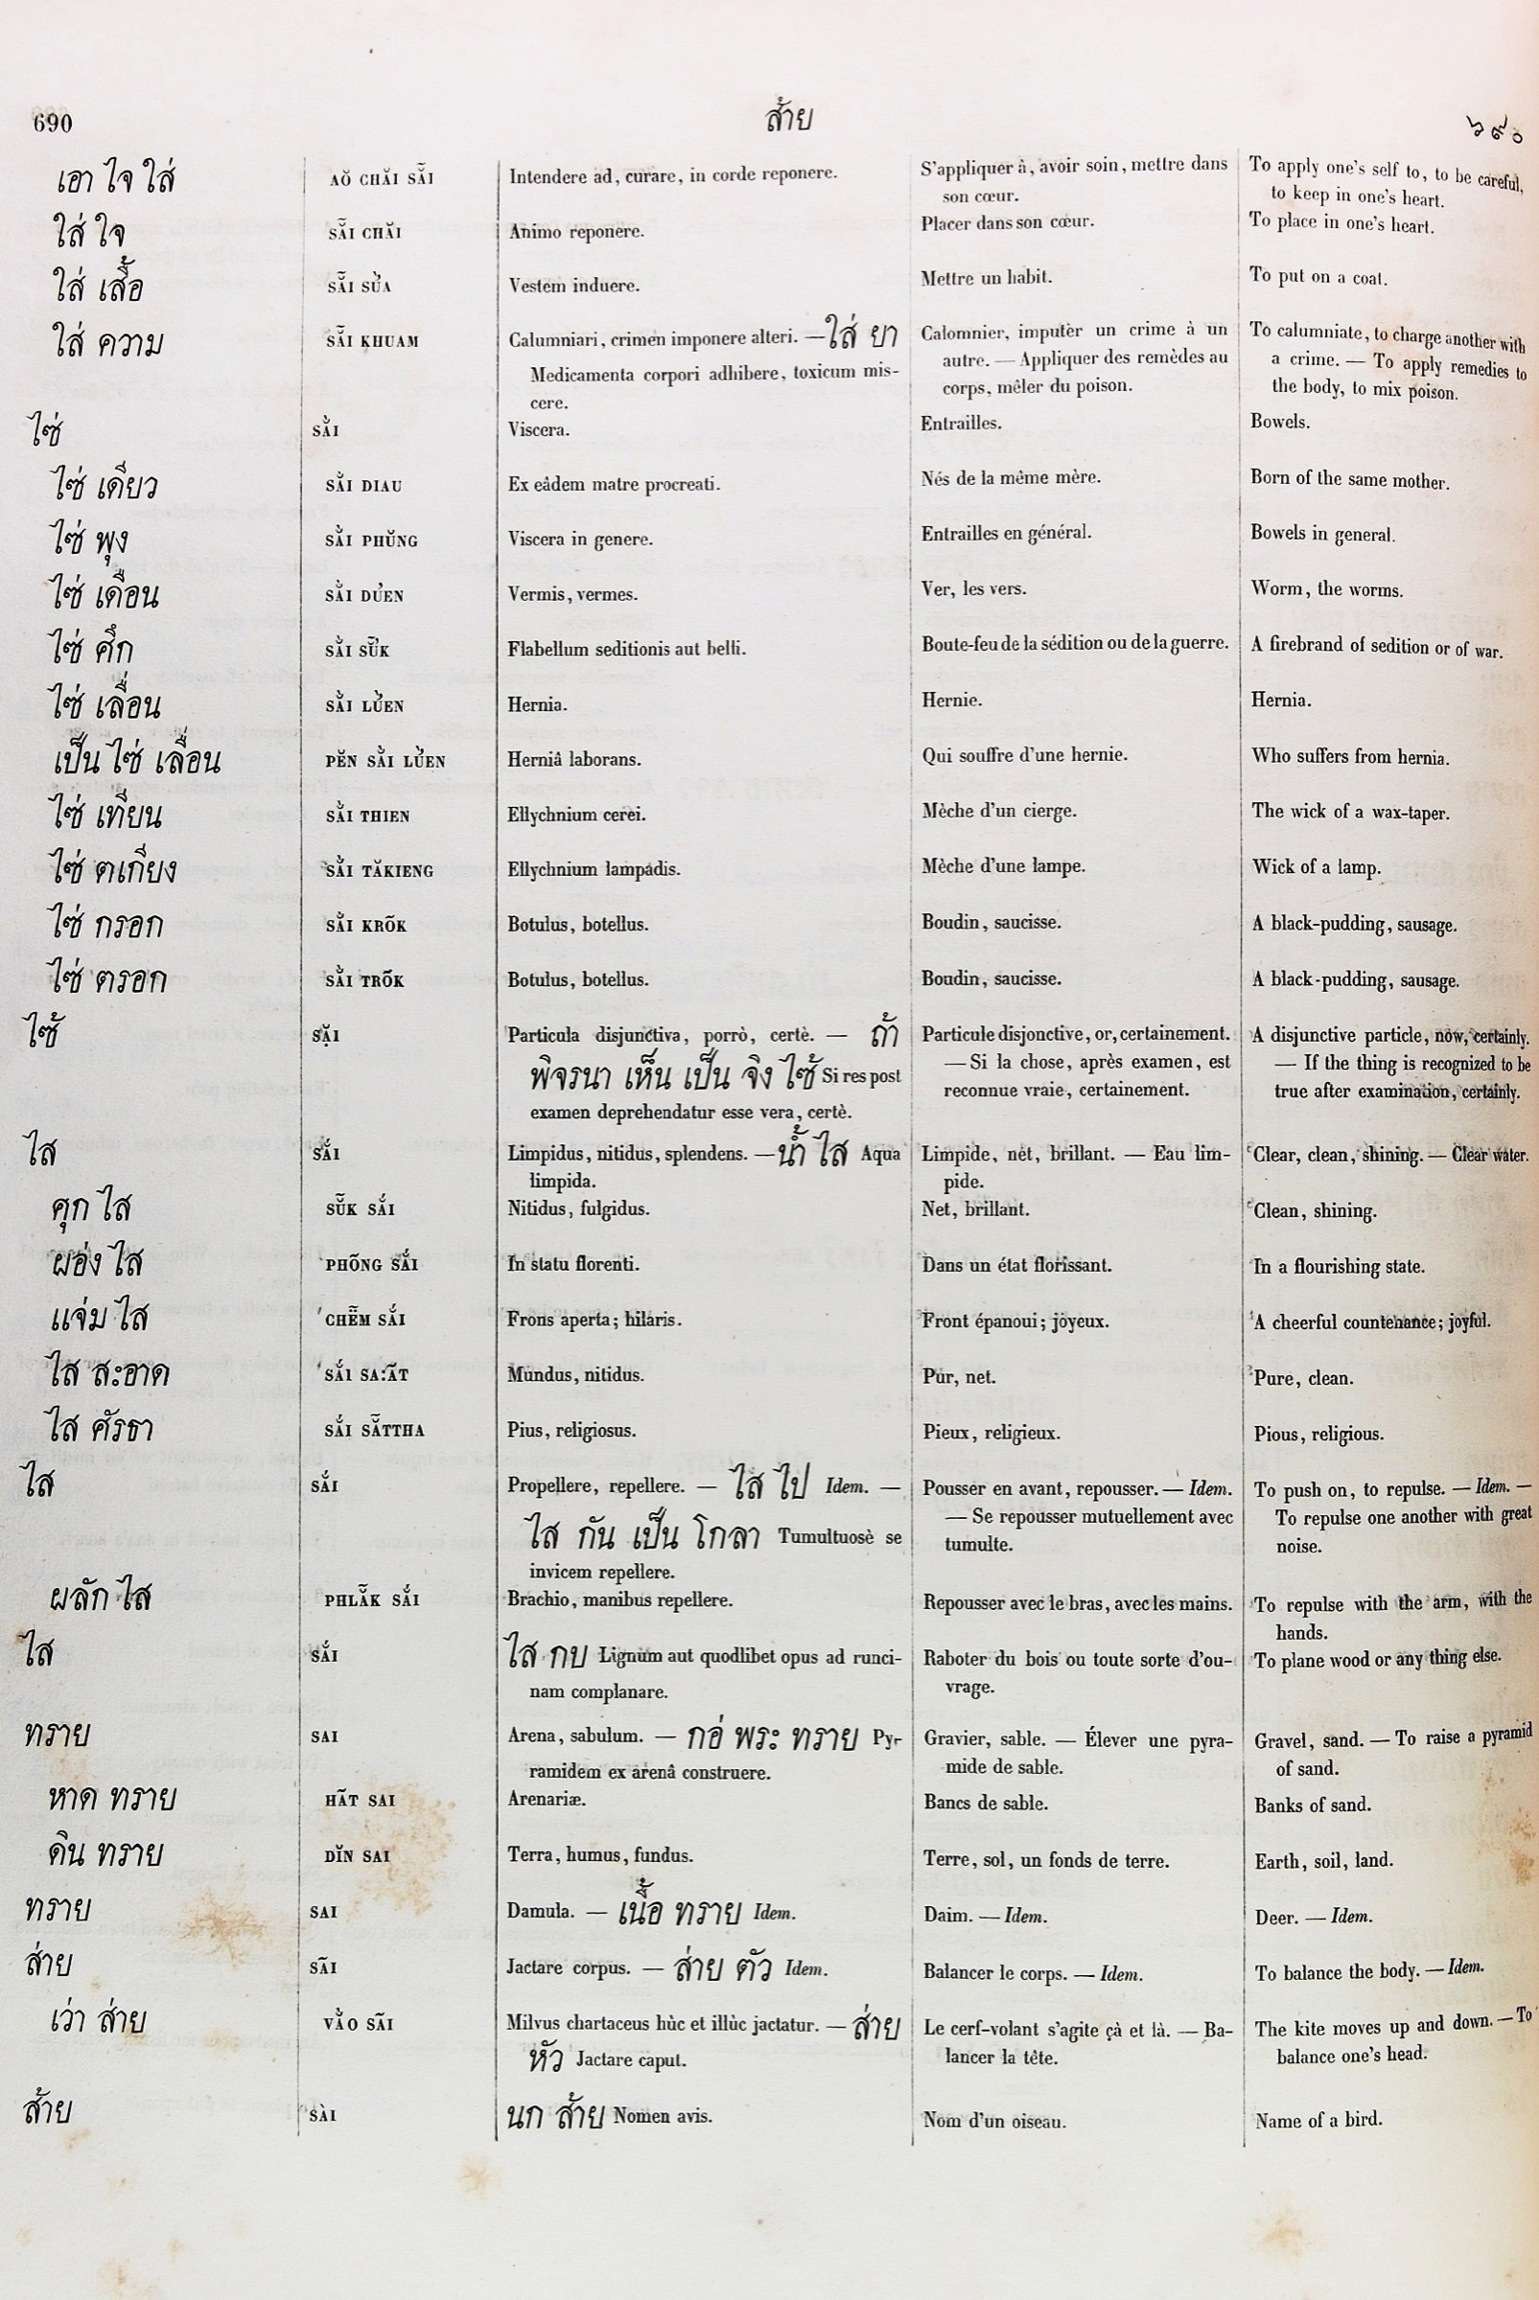 690 ส้าย ๖๙๐
เอา ใจ ใส่ AŎ CHĂI SÀI Intendere ad, curare, in corde reponere. S'appliquer à, avoir soin, mettre dans To apply one's self to, to be careful,
son cœur. to keep in one's heart.
ใส่ ใจ Animo reponere. Placer dans son cœur. To place in one's heart.
ใส่ เสื้อ Vestem induere. Mettre un habit. To put on a coat.
ใส่ ความ Calumniari, crimen imponere alteri. — ใส่ ยา Calomnier, imputer un crime à un To calumniate, to charge another with
Medicamenta corpori adhibere, toxicum mis- autre. — Appliquer des remèdes au a crime. — To apply remedies to
cere. corps, mêler du poison. the body, to mix poison.
ไซ่ Viscera. Entrailles. Bowels.
ไซ่ เดียว Ex eâdem matre procreati. Nés de la même mère. Born of the same mother.
ไซ่ พุง Viscera in genere. Entrailles en général. Bowels in general.
ไซ่ เดือน Vermis, vermes. Ver, les vers. Worm, the worms.
ไซ่ ศึก Flabellum seditionis aut belli. Boute-feu de la sédition ou de la guerre. A firebrand of sedition or of war.
ไซ่ เลื่อน Hernia. Hernie. Hernia.
เป็น ไซ่ เลื่อน Herniâ laborans. Qui souffre d'une hernie. Who suffers from hernia.
ไซ่ เทียน Ellychnium cerei. Mèche d'un cierge. The wick of a wax-taper.
ไซ่ ตเกียง Ellychnium lampadis. Mèche d'une lampe. Wick of a lamp.
ไซ่ กรอก Botulus, botellus. Boudin, saucisse. A black-pudding, sausage.
ไซ่ ตรอก Botulus, botellus. Boudin, saucisse. A black-pudding, sausage.
ไซ้ Particula disjunctiva, porrò, certè. — ถ้า Particule disjonctive, or, certainement. A disjunctive particle, now, certainly.
พิจรนา เห็น เป็น จิง ไซ้ Si res post — Si la chose, après examen, est — If the thing is recognized to be
examen deprehendatur esse vera, certè. reconnue vraie, certainement. true after examination, certainly.
ไส Limpidus, nitidus, splendens. — น้ำ ไส Aqua Limpide, net, brillant. — Eau lim- Clear, clean, shining. — Clear water.
limpida. pide.
ศุก ไส Nitidus, fulgidus. Net, brillant. Clean, shining.
ผอ่ง ไส In statu florenti. Dans un état florissant. In a flourishing state.
แจ่ม ไส Frons aperta; hilaris. Front épanoui; joyeux. A cheerful countenance; joyful.
ไส สะอาด Mundus, nitidus. Pur, net. Pure, clean.
ไส ศัรธา Pius, religiosus. Pieux, religieux. Pious, religious.
ไส Propellere, repellere. — ไส ไป Idem. — Pousser en avant, repousser. — Idem. To push on, to repulse. — Idem. —
ไส กัน เป็น โกลา Tumultuosè se — Se repousser mutuellement avec To repulse one another with great
invicem repellere. tumulte. noise.
ผลัก ไส Brachio, manibus repellere. Repousser avec le bras, avec les mains. To repulse with the arm, with the
hands.
ไส ไส กบ Lignum aut quodlibet opus ad runci- Raboter du bois ou toute sorte d'ou- To plane wood or any thing else.
nam complanare. vrage.
ทราย SAI Arena, sabulum. — กอ่ พระ ทราย Py- Gravier, sable. — Élever une pyra- Gravel, sand. — To raise a pyramid
ramidem ex arenâ construere. mide de sable. of sand.
หาด ทราย HÃT SAI Arenariæ. Bancs de sable. Banks of sand.
ดิน ทราย DĬN SAI Terra, humus, fundus. Terre, sol, un fonds de terre. Earth, soil, land.
ทราย SAI Damula. — เนื้อ ทราย Idem. Daim. — Idem. Deer. — Idem.
ส่าย SÃI Jactare corpus. — ส่าย ตัว Idem. Balancer le corps. — Idem. To balance the body. — Idem.
เว่า ส่าย Milvus chartaceus hùc et illùc jactatur. — ส่าย Le cerf-volant s'agite çà et là. — Ba- The kite moves up and down. — To
หัว Jactare caput. lancer la tête. balance one's head.
ส้าย SÀI นก ส้าย Nomen avis. Nom d'un oiseau. Name of a bird.